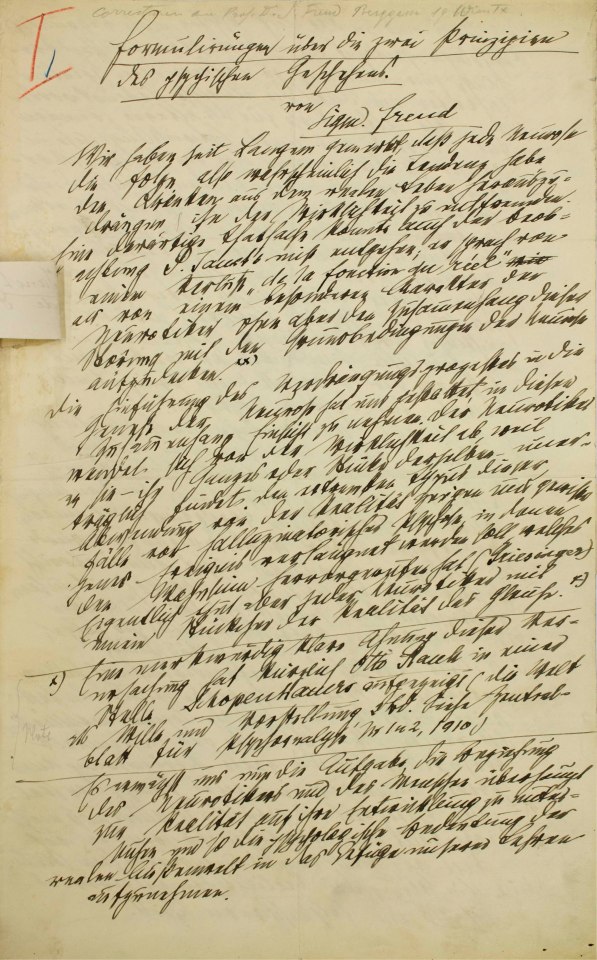 Correcturen an Prof. Dr. S. Freud Berggasse 19 Wien
I,
Formulirungen über die zwei Prinzipien
des psychischen Geschehens.
von
Sigm. Freud
Wir haben seit Langem gemerkt, daß jede Neurose
die Folge also wahrscheinlich die Tendenz habe
den Kranken aus dem realen Leben herauszu-
drängen, ihn der Wirklichkeit zu entfremden.
Eine derartige Thatsache konnte auch der Beob-
achtung P. Janet's nicht entgehen; er sprach von
einem Verluste „de la fonction du réel"
als von einem besonderen Charakter der
Neurotiker ohne aber den Zusammenhang dieser
Störung mit den Grundbedingungen der Neurose
aufzudecken. x)
Die Einführung des Verdrängungsprozesses in die
Genese der Neurose hat uns gestattet, in diesen
Zusammenhang Einsicht zu nehmen. Der Neurotiker
wendet sich von der Wirklichkeit ab, weil
er sie – ihr Ganzes oder Stücke derselben – uner-
träglich findet. Den extremsten Typus dieser
Abwendung von der Realität zeigen uns gewisse
Fälle von halluzinatorischer Psychose, in denen
jenes Ereignis verleugnet werden soll, welches
den Wahnsinn hervorgerufen hat (Griesinger)
Eigentlich thut aber jeder Neurotiker mit
einem Stückchen der Realität das Gleiche. x)
x) Eine merkwürdig klare Ahnung dieser Ver-
ursachung hat kürzlich Otto Rank in einer
Stelle Schopenhauers aufgezeigt (die Welt
als Wille und Vorstellung 2 Bd. Siehe Zentral-
blatt für Psychoanalyse H 1 u 2, 1910)
Note
Es erwächst uns nun die Aufgabe, die Beziehung
des Neurotikers und des Menschen überhaupt
zur Realität auf ihre Entwicklung zu unter-
suchen und so die psychologische Bedeutung der
realen Außenwelt in das Gefüge unserer Lehren
aufzunehmen.